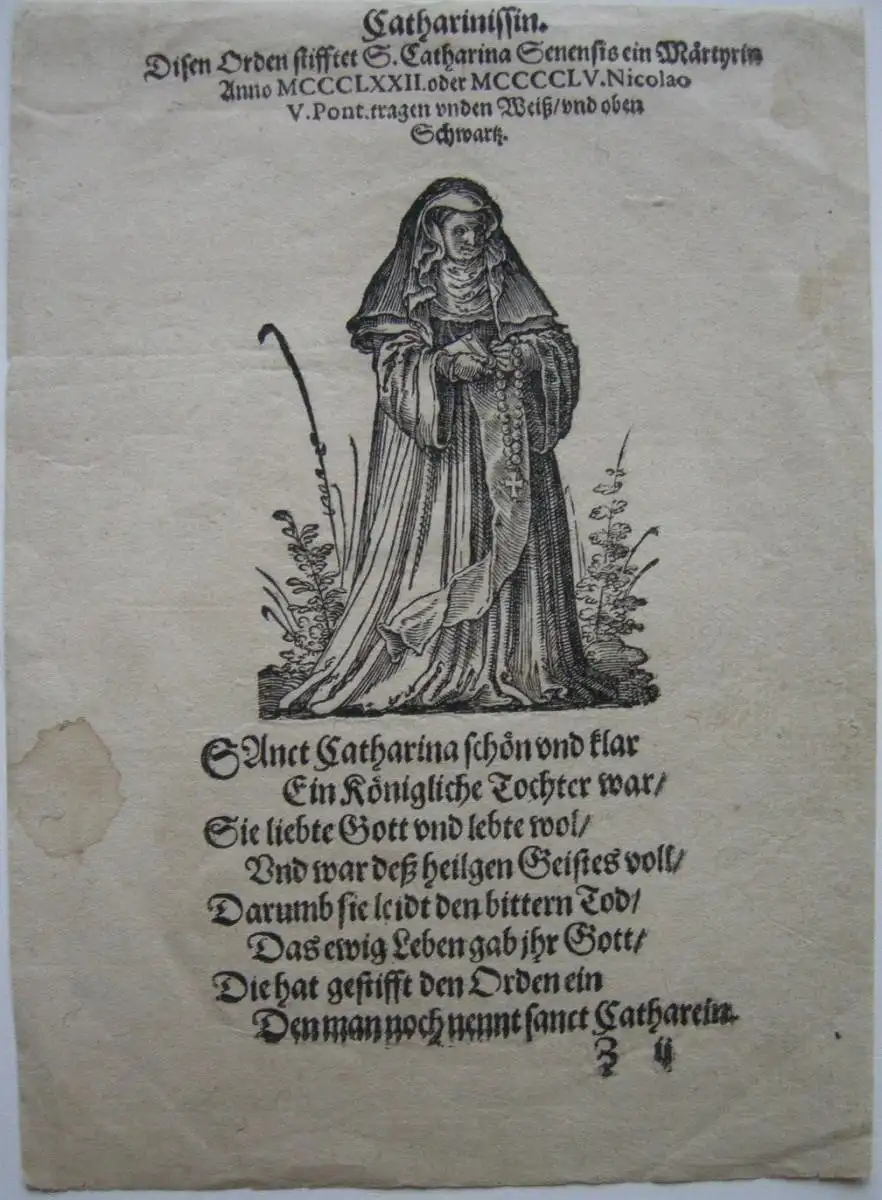 Catharinissin.
Disen Orden stifftet S. Catharina Senensis ein Märtyrin
Anno MCCCCLXXII. oder MCCCCCLV. Nicolao
V. Pont. tragen vnden Weiß/ vnd oben
Schwartz.
SAnct Catharina schön vnd klar
Ein Königliche Tochter war/
Sie liebte Gott vnd lebte wol/
Vnd war deß heilgen Geistes voll/
Darumb sie leidt den bittern Tod/
Das ewig Leben gab jhr Gott/
Die hat gestifft den Orden ein
Den man noch nennt sanct Catharein.
Z ij